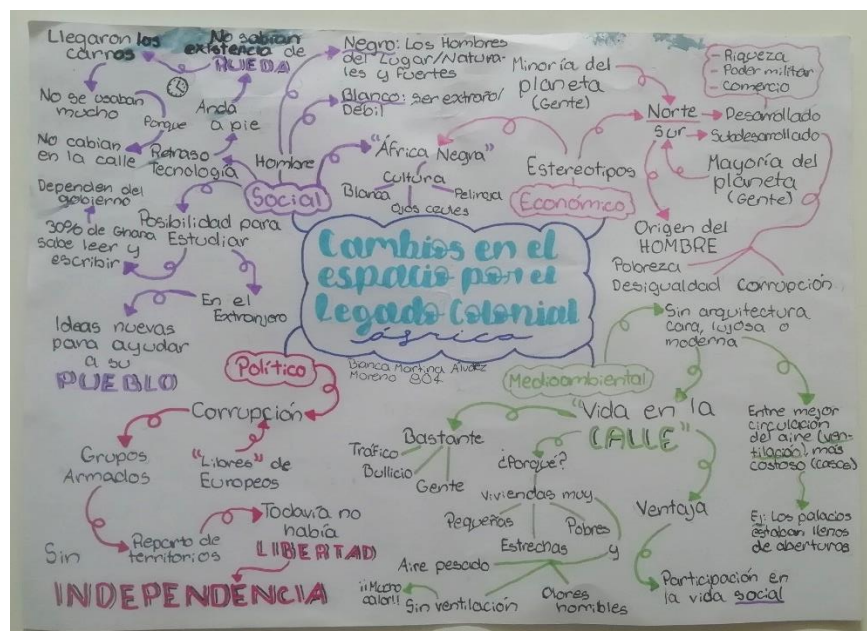 Cambios en el
espacio por el
Legado Colonial
áfrica
Bianca Martina Alvarez
Moreno 804
Social
Hombre
Negro: Los Hombres
del Lugar/Natura-
les y fuertes
Blanco: ser extraño/
Débil
Retraso
Tecnología
Anda
a pie
No sabían
existencia de
RUEDA
Llegaron los
carros
No se usaban
mucho
Porque
No cabían
en la calle
Posibilidad para
Estudiar
30% de Ghana
sabe leer y
escribir
Dependen del
gobierno
En el
Extranjero
Ideas nuevas
para ayudar
a su
PUEBLO
Económico
Estereotipos
"África Negra"
Cultura
Blanca
Ojos azules
Peliroja
Minoría del
planeta
(Gente)
Norte
Sur
Desarrollado
Subdesarrollado
- Riqueza
- Poder militar
- Comercio
Mayoría del
planeta
(Gente)
Origen del
HOMBRE
Pobreza
Desigualdad
Corrupción
Político
Corrupción
Grupos
Armados
"Libres" de
Europeos
Reparto de
territorios
Todavía no
había
LIBERTAD
Sin
INDEPENDENCIA
Medioambiental
Sin arquitectura
cara, lujosa o
moderna
Entre mejor
circulación
del aire (ven-
tilación), más
costoso (casas)
Ej: Los palacios
estaban llenos
de aberturas
"Vida en la
CALLE"
Bastante
Tráfico
Bullicio
Gente
¿Porqué?
Viviendas muy
Pequeñas
Estrechas
Pobres
y
Aire pesado
¡¡Mucho
calor!!
Sin ventilación
Olores
horribles
Ventaja
Participación en
la vida social